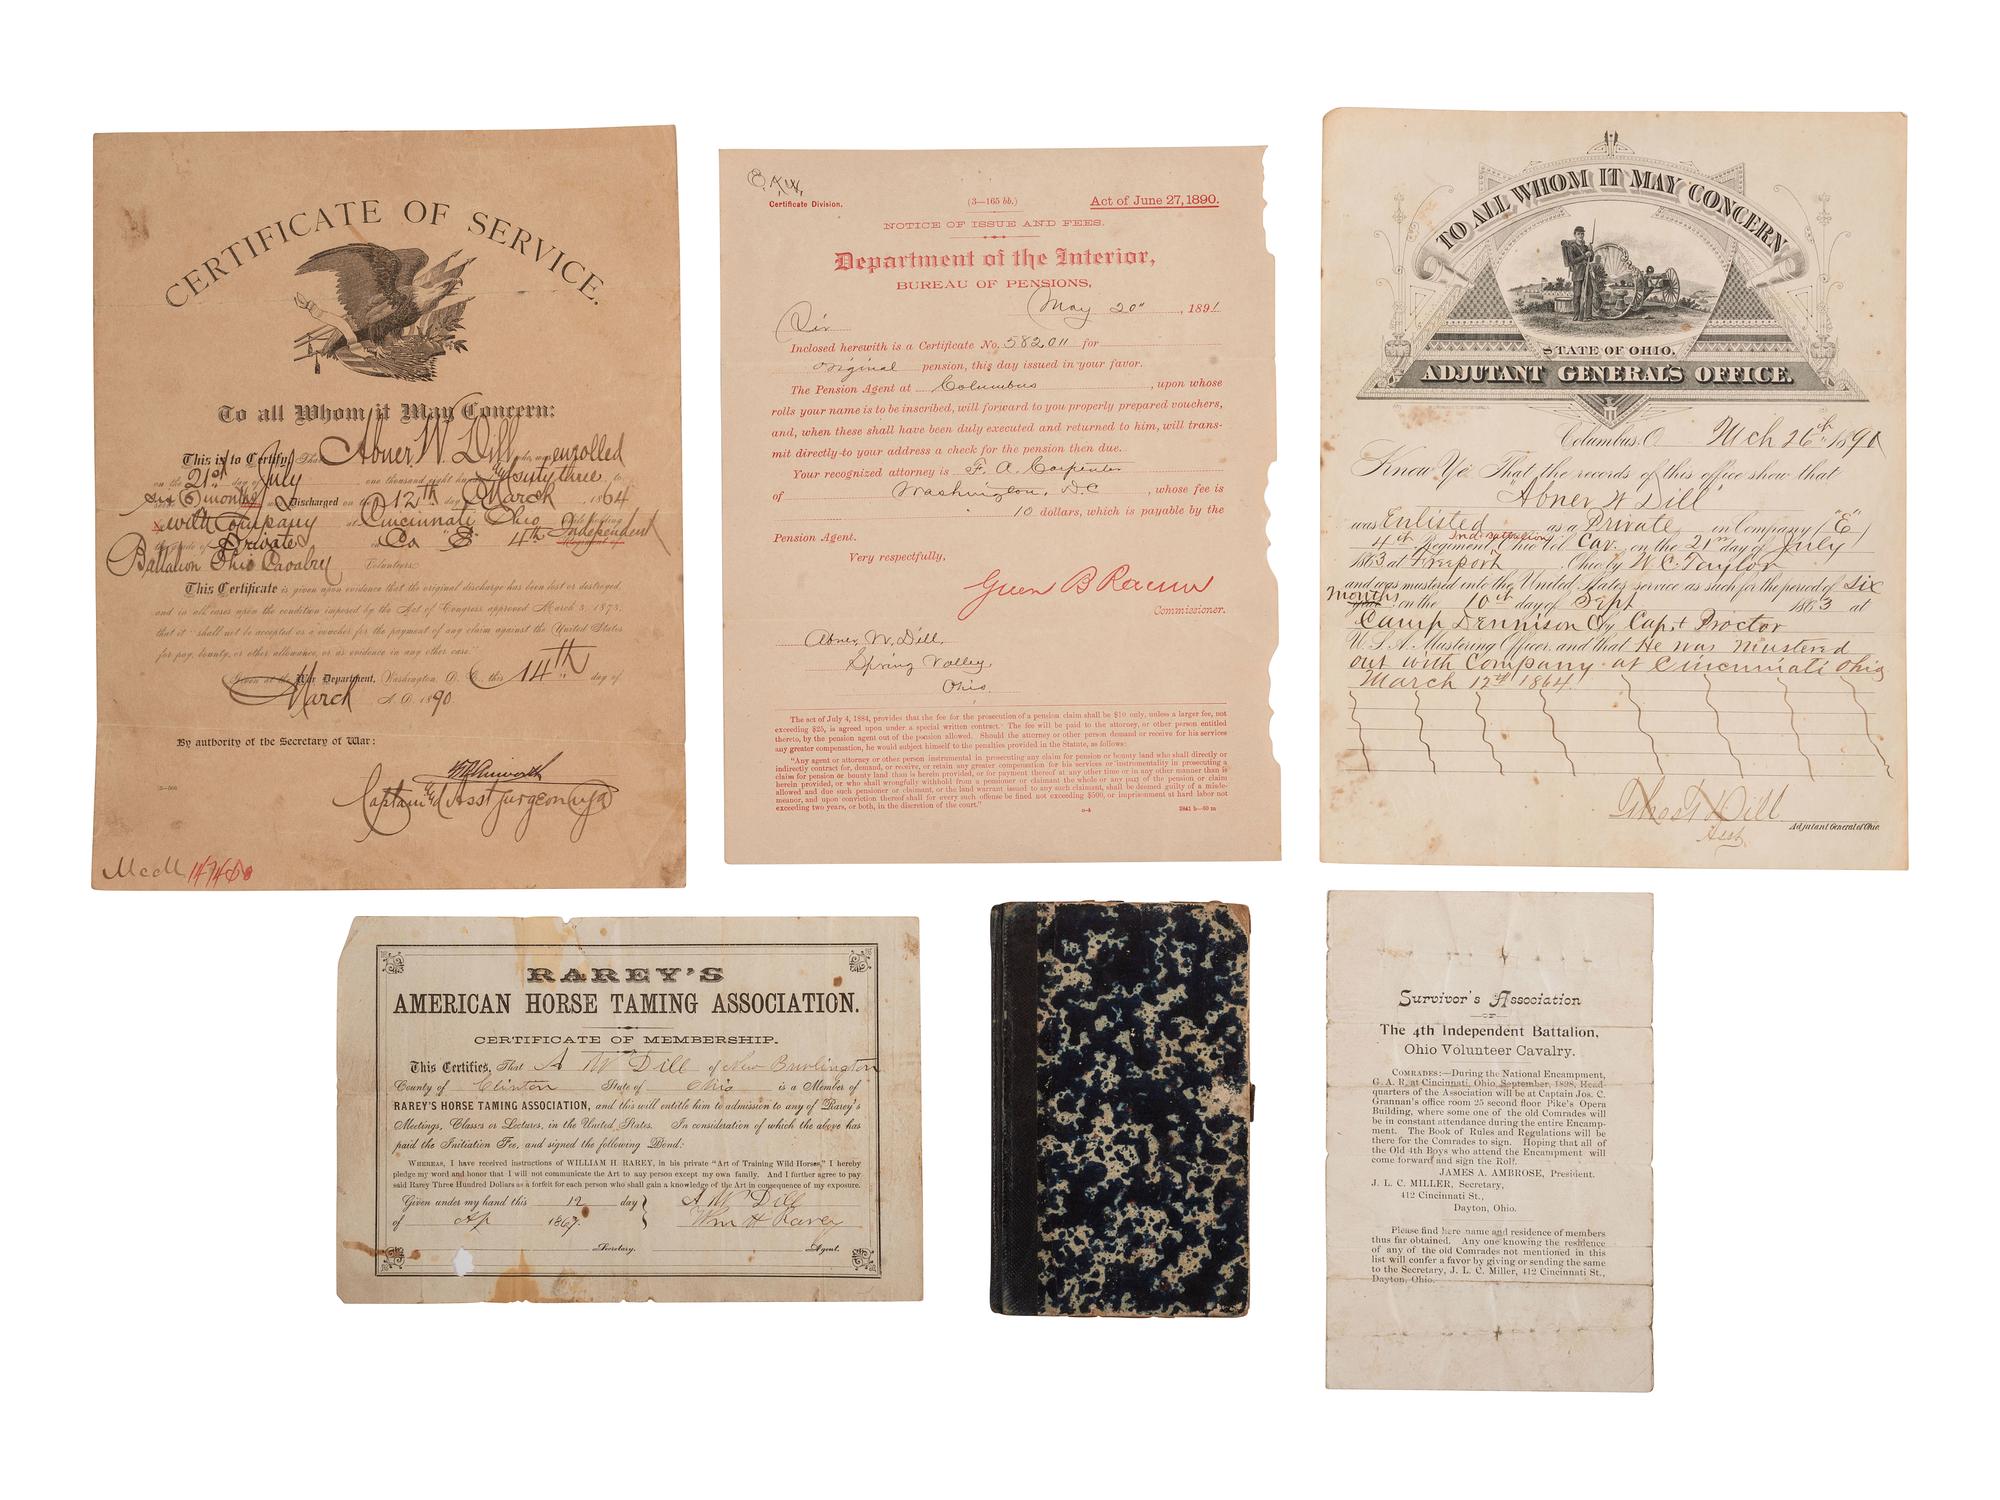 CERTIFICATE OF SERVICE.
To all Whom it May Concern:
This is to Certify, That Abner W. Dill who was enrolled
on the 21st day of July one thousand eight hundred and sixty three to
serve six (6) months and was Discharged on the 12th day of March 1864
with Company at Cincinnati Ohio while holding
the grade of Private in Co "E" 4th Independent
Battalion Ohio Cavalry Volunteers.
This Certificate is given upon evidence that the original discharge has been lost or destroyed,
and in all cases upon the condition imposed by the Act of Congress approved March 3, 1873,
that it "shall not be accepted as a voucher for the payment of any claim against the United States
for pay, bounty, or other allowance, or as evidence in any other case."
Given at the War Department, Washington, D. C., this 14th day of
March A. D. 1890.
By authority of the Secretary of War:
F. C. Ainsworth
Captain and Asst Surgeon U.S.A.
Certificate Division.
(3—165 bb.)
Act of June 27, 1890.
NOTICE OF ISSUE AND FEES.
Department of the Interior,
BUREAU OF PENSIONS,
May 20", 1891
Sir
Inclosed herewith is a Certificate No. 582,011 for
original pension, this day issued in your favor.
The Pension Agent at Columbus, upon whose
rolls your name is to be inscribed, will forward to you properly prepared vouchers,
and, when these shall have been duly executed and returned to him, will trans-
mit directly to your address a check for the pension then due.
Your recognized attorney is F. A. Carpenter
of Washington, D.C., whose fee is
10 dollars, which is payable by the
Pension Agent.
Very respectfully,
Green B Raum
Commissioner.
Abner W. Dill,
Spring Valley
Ohio.
The act of July 4, 1884, provides that the fee for the prosecution of a pension claim shall be $10 only, unless a larger fee, not
exceeding $25, is agreed upon under a special written contract. The fee will be paid to the attorney, or other person entitled
thereto, by the pension agent out of the pension allowed. Should the attorney or other person demand or receive for his services
any greater compensation, he would subject himself to the penalties provided in the Statute, as follows:
"Any agent or attorney or other person instrumental in prosecuting any claim for pension or bounty land who shall directly or
indirectly contract for, demand, or receive, or retain any greater compensation for his services or instrumentality in prosecuting a
claim for pension or bounty land than is herein provided, or for payment thereof at any other time or in any other manner than is
herein provided, or who shall wrongfully withhold from a pensioner or claimant the whole or any part of the pension or claim
allowed and due such pensioner or claimant, or the land warrant issued to any such claimant, shall be deemed guilty of a misde-
meanor, and upon conviction thereof shall for every such offense be fined not exceeding $500, or imprisonment at hard labor not
exceeding two years, or both, in the discretion of the court."
TO ALL WHOM IT MAY CONCERN
STATE OF OHIO,
ADJUTANT GENERAL'S OFFICE.
Columbus, O. Mch 26th 1890
Know Ye That the records of this office show that
"Abner W Dill"
was Enlisted as a Private in Company ("E")
Ind. Battalion
4th Regiment Ohio Vol Cav. on the 21st day of July
1863 at Freeport Ohio by W C Taylor
and was mustered into the United States service as such for the period of Six
months on the 10th day of Sept 1863 at
Camp Dennison O by Capt Proctor
U.S.A. Mustering Officer, and that He was mustered
out with Company at Cincinnati Ohio
March 12th 1864.
Dill
Asst.
Adjutant General of Ohio.
RAREY'S
AMERICAN HORSE TAMING ASSOCIATION.
CERTIFICATE OF MEMBERSHIP.
This Certifies, That A W Dill of New Burlington
County of Clinton State of Ohio is a Member of
RAREY'S HORSE TAMING ASSOCIATION, and this will entitle him to admission to any of Rarey's
Meetings, Classes or Lectures, in the United States. In consideration of which the above has
paid the Initiation Fee, and signed the following Bond:
WHEREAS, I have received instructions of WILLIAM H RAREY, in his private "Art of Training Wild Horses," I hereby
pledge my word and honor that I will not communicate the Art to any person except my own family. And I further agree to pay
said Rarey Three Hundred Dollars as a forfeit for each person who shall gain a knowledge of the Art in consequence of my exposure.
Given under my hand this 12 day A W Dill
of Ap 1867. Wm H Rarey
Secretary. Agent.
Survivor's Association
—OF—
The 4th Independent Battalion,
Ohio Volunteer Cavalry.
COMRADES:—During the National Encampment,
G. A. R. at Cincinnati, Ohio, September, 1898, Head-
quarters of the Association will be at Captain Jos. C.
Grannan's office room 25 second floor Pike's Opera
Building, where some one of the old Comrades will
be in constant attendance during the entire Encamp-
ment. The Book of Rules and Regulations will be
there for the Comrades to sign. Hoping that all of
the Old 4th Boys who attend the Encampment will
come forward and sign the Roll.
JAMES A. AMBROSE, President.
J. L. C. MILLER, Secretary,
412 Cincinnati St.,
Dayton, Ohio.
Please find here name and residence of members
thus far obtained. Any one knowing the residence
of any of the old Comrades not mentioned in this
list will confer a favor by giving or sending the same
to the Secretary, J. L. C. Miller, 412 Cincinnati St.,
Dayton, Ohio.